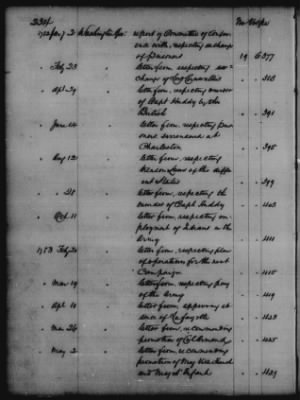 334
No. Vol. pa.
1782 Jany 2 Washington Geo: report of Committee of Confer
ence with, respecting exchange
of Prisoners 19 6.377
" Feby 23 letter from respecting ex
change of Lord Cornwallis " " 313
" Apl. 29 letter from, respecting murder
of Capt Huddy by the
British " " 391
" June 14 letter from, respecting
surrendered at
Charleston " " 395
" Aug 12 letter from, respecting
of the differ
ent States " " 399
" letter from, respecting the
murder of Capt Huddy " " 403
" Oct. 11 letter from, respecting em
ployment of Indians in the
Army " " 411
1783 Feby letter from, respecting plan
of operations for the next
Campaign " " 415
" Mar 19 letter from, respecting pay
of the Army " " 419
" Apl letter from, approving
of " " 423
" Mar 26 letter from, recommending
promotion of Col Armand " " 425
" May 2 letter from recommending
promotion of
and " " 429